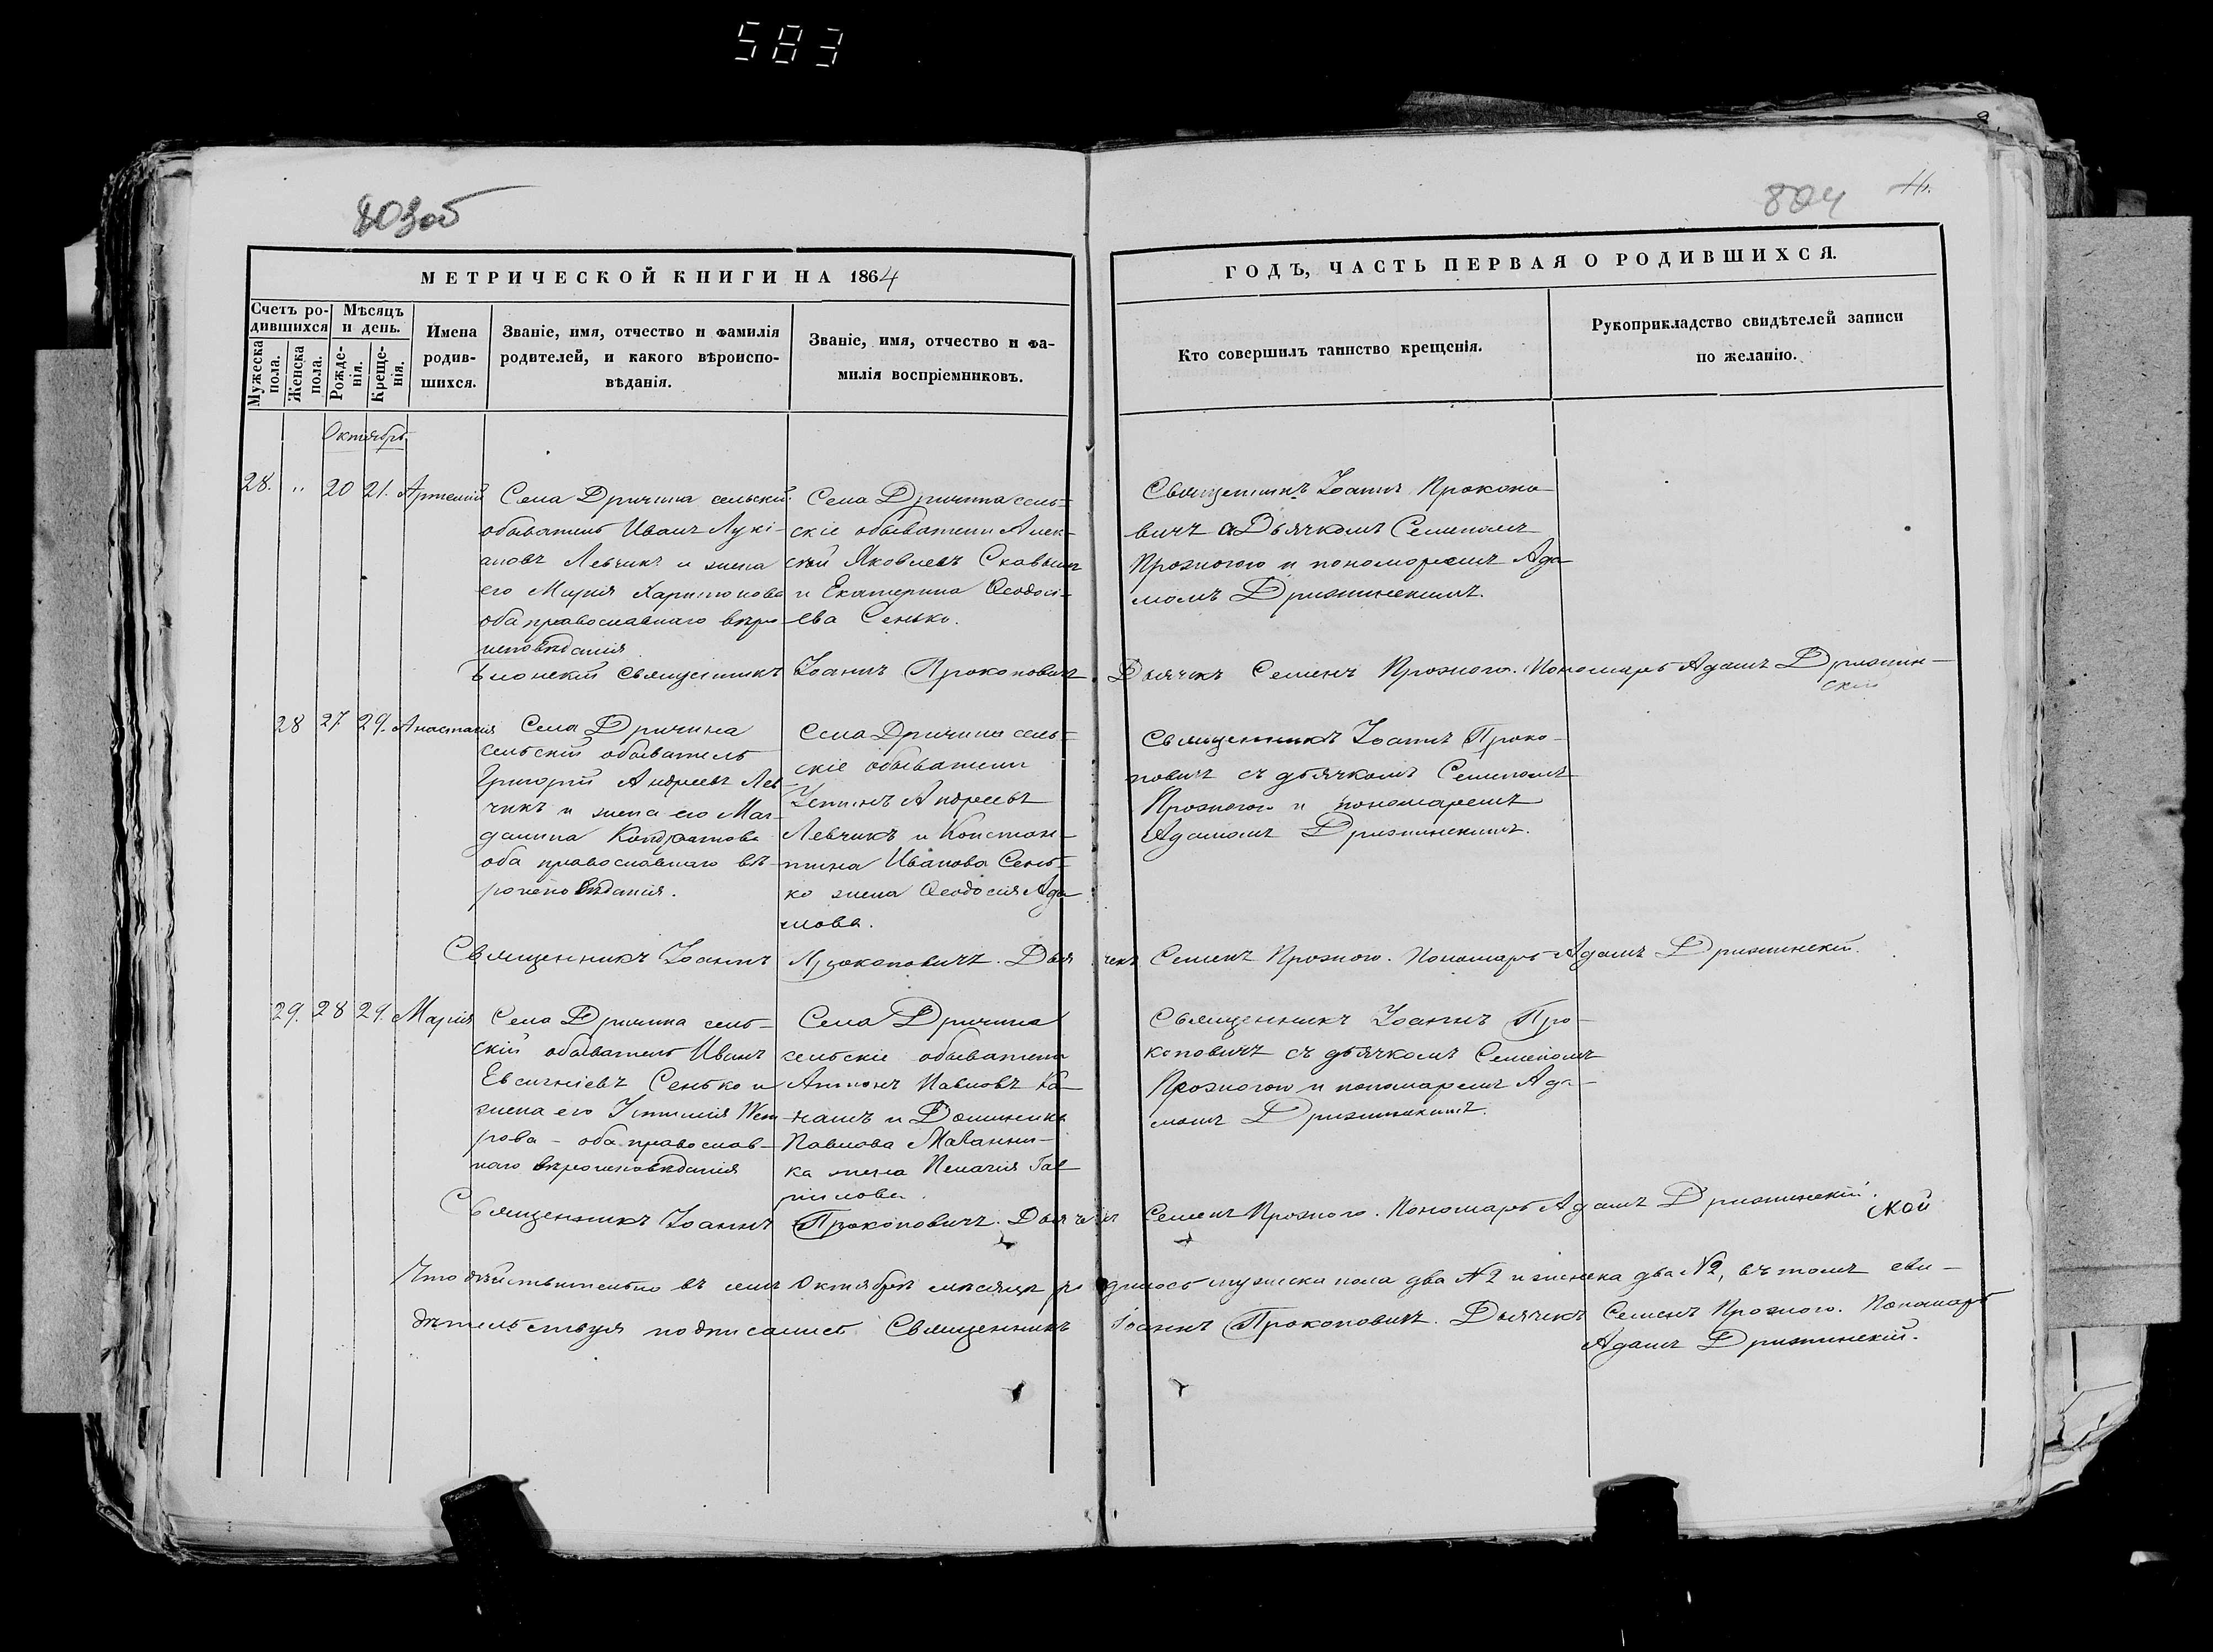 583
803об
804
МЕТРИЧЕСКОЙ КНИГИ НА 1864
ГОДЪ, ЧАСТЬ ПЕРВАЯ О РОДИВШИХСЯ.
Счетъ родившихся
Мужеска пола.
Женска пола.
Мѣсяцъ и день.
Рожденія.
Крещенія.
Имена родившихся.
Званіе, имя, отчество и фамилія
родителей, и какого вѣроиспо-
вѣданія.
Званіе, имя, отчество и фа-
милія воспріемниковъ.
Кто совершилъ таинство крещенія.
Рукоприкладство свидѣтелей записи
по желанію.
Октябрь
28. " 20 21. Артемій
Села Дричина сельскій
обыватель Иванъ Лукі-
ановъ Левчикъ и жена
его Марія Харитонова
оба православнаго веро
исповѣданія
Села Дричина сель-
скіе обыватели Алек-
сѣй Яковлевъ
и Екатерина Ѳеодосі-
ева Сенько.
Священникъ Іоаннъ Прокопо-
вичъ Дьячкомъ Семеномъ
и пономаремъ Ада-
момъ
священникъ Іоаннъ Прокоповичъ. Дьячекъ Семенъ Пономарь Адамъ
28 27 29. Анастасія
Села Дричина
сельскій обыватель
Григорій Андреевъ Лев
чикъ и жена его Маг-
далина Кондратова
оба православнаго вѣ-
роисповѣданія.
Села Дричина сель-
скіе обыватели
Устинъ Андреевъ
Левчикъ и Констан-
тина Иванова Сень-
ко жена Ѳеодосія Ада
мова.
Священникъ Іоаннъ Проко-
повичъ съ дьячкомъ Семеномъ
и пономаремъ
Адамомъ
Священникъ Іоаннъ Прокоповичъ. Дьячекъ Семенъ Пономарь Адамъ
29. 28 29. Марія
Села Дричина сель-
скій обыватель Иванъ
Евсигніевъ Сенько и
жена его Устинія Пет
рова - оба православ-
наго вѣроисповѣданія
Села Дричина
сельскіе обыватели
Антонъ Павловъ Ка-
нашъ и Доминика
Павлова
ка жена Пелагія Гав
рилова.
Священникъ Іоаннъ Про-
коповичъ съ дьячкомъ Семеномъ
и пономаремъ Ада-
момъ
Священникъ Іоаннъ Прокоповичъ. Дьячекъ Семенъ Пономарь Адамъ
Что дѣйствительно въ семъ Октябрѣ месяцѣ родилось мужеска пола два №2 и женска два №2, въ томъ сви-
дѣтельствуя подписались Священникъ Іоаннъ Прокоповичъ. Дьячекъ Семенъ Пономарь
Адамъ